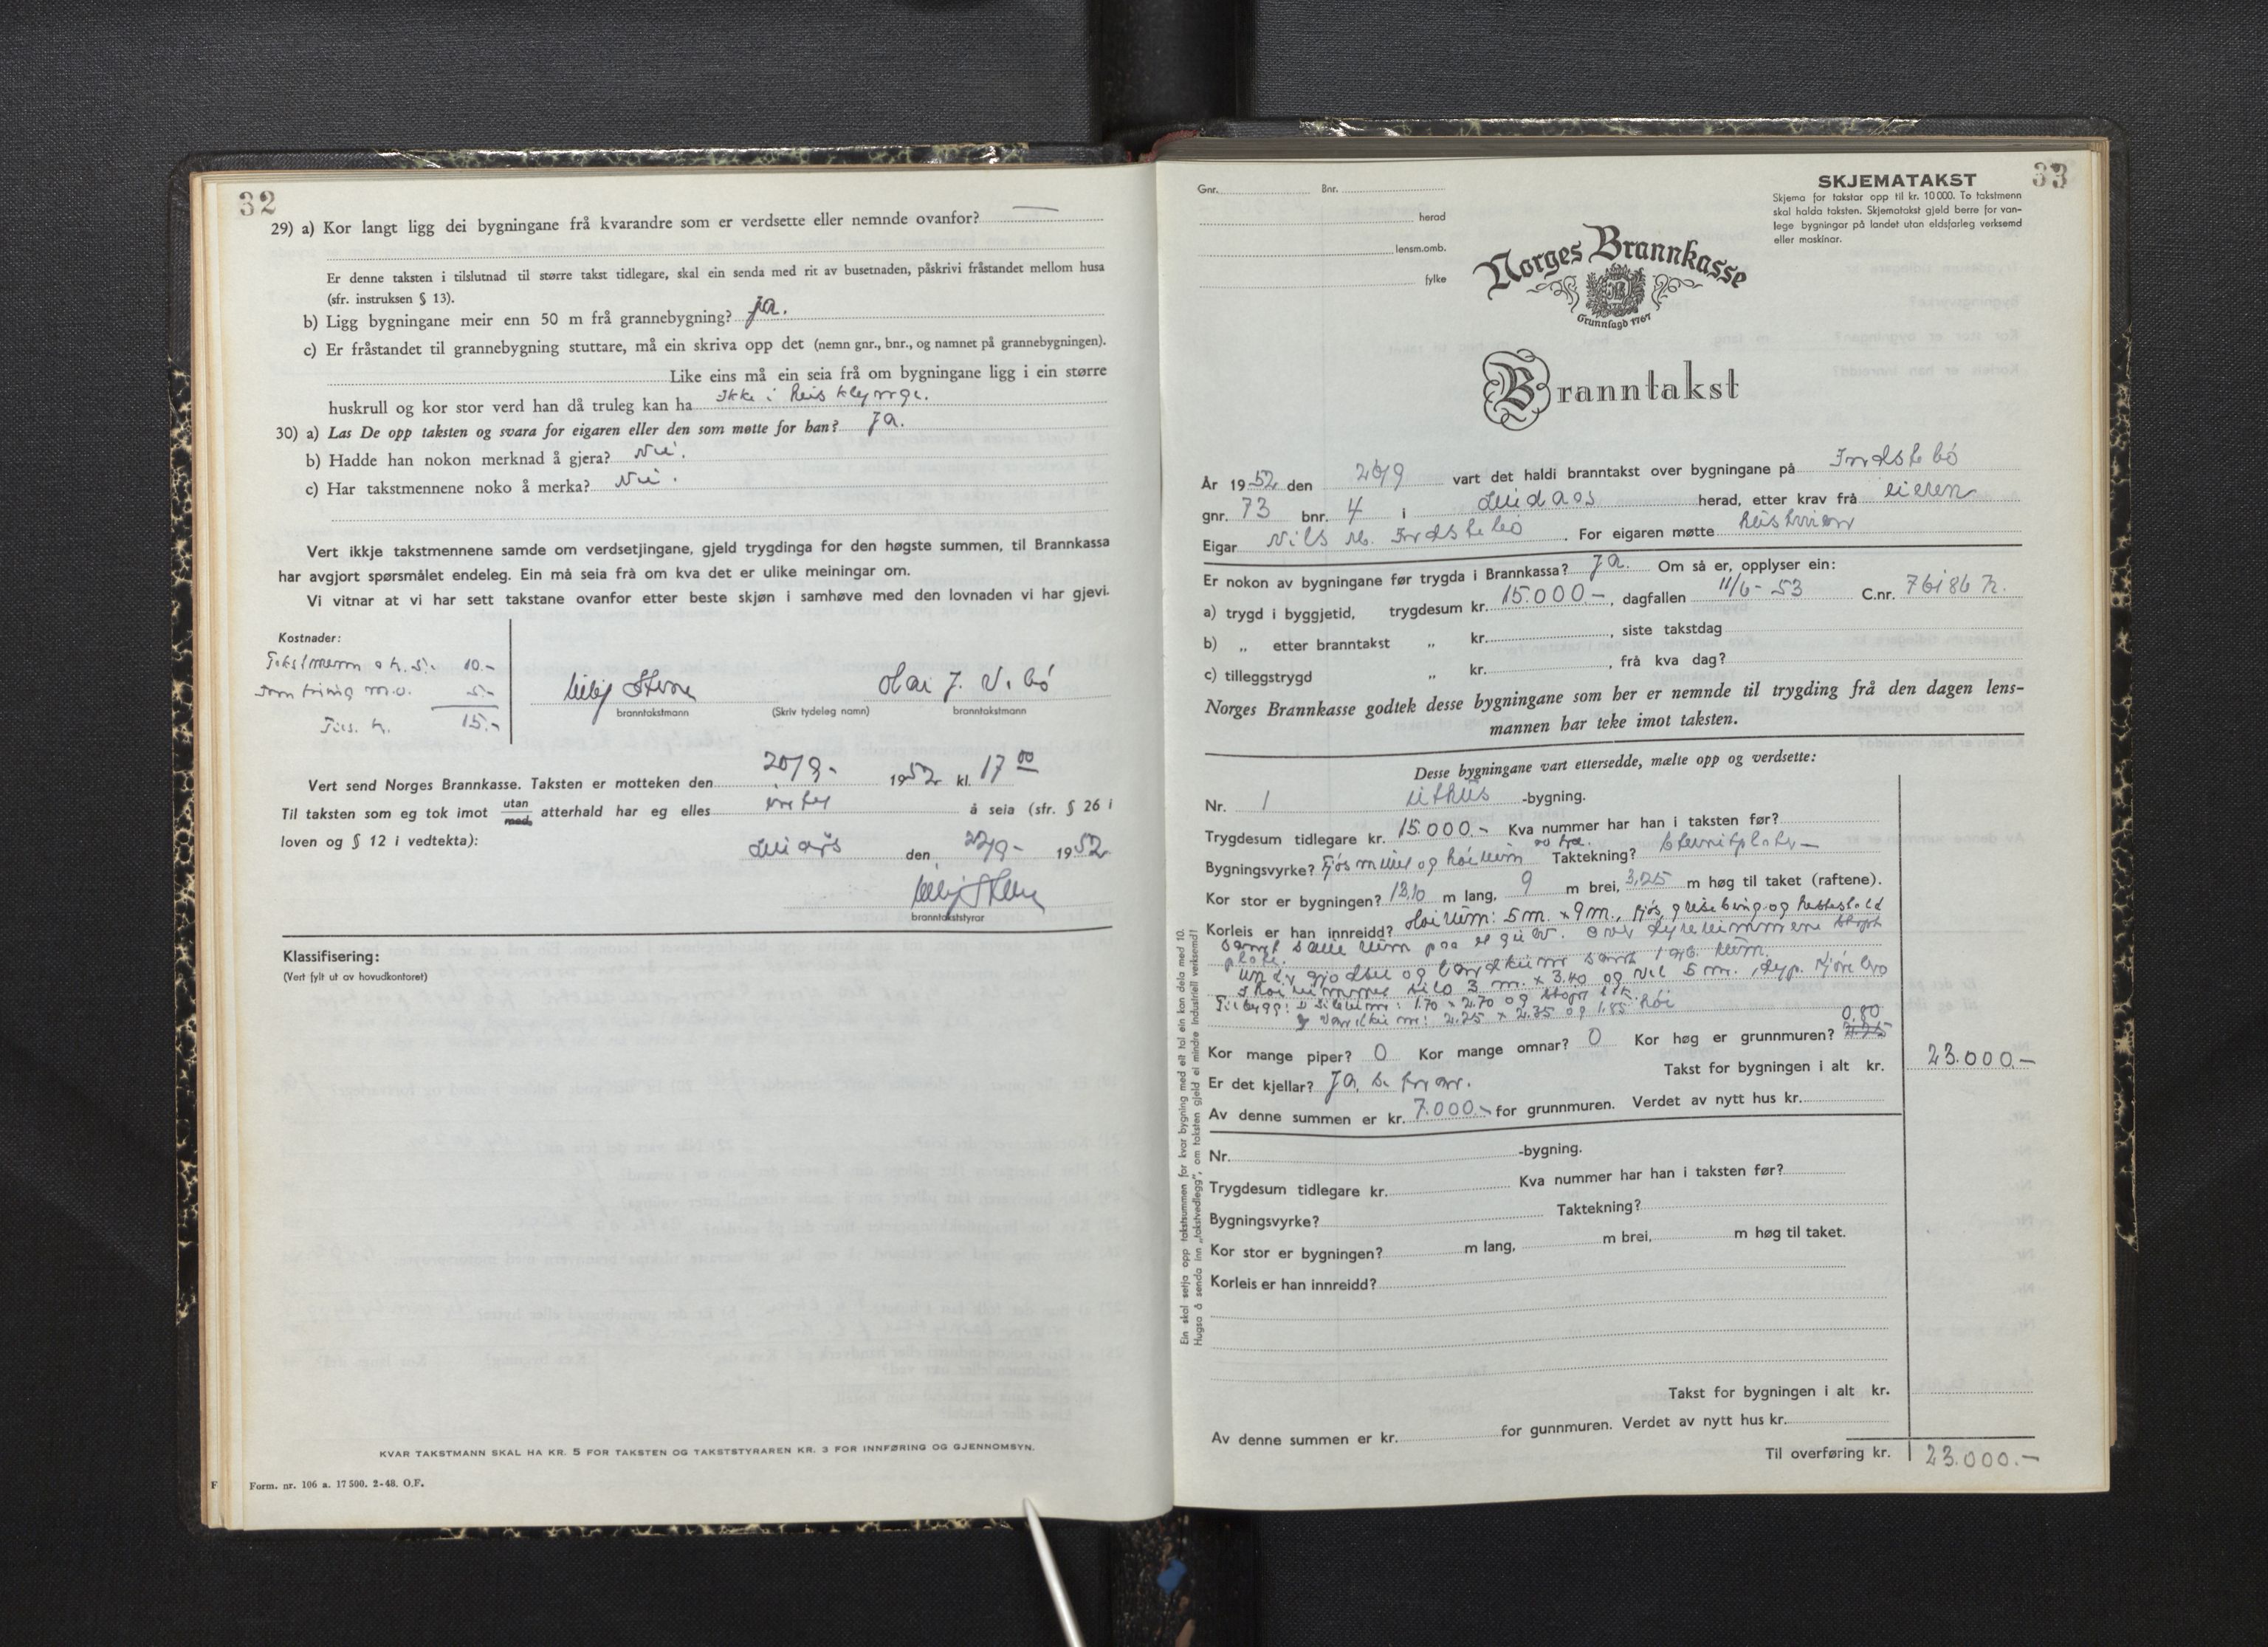 32
29) a) Kor langt ligg dei bygningane frå kvarandre som er verdsette eller nemnde ovanfor? —
Er denne taksten i tilslutnad til større takst tidlegare, skal ein senda med rit av busetnaden, påskrivi fråstandet mellom husa
(sfr. instruksen § 13).
b) Ligg bygningane meir enn 50 m frå grannebygning? Ja.
c) Er fråstandet til grannebygning stuttare, må ein skriva opp det (nemn gnr., bnr., og namnet på grannebygningen).
Like eins må ein seia frå om bygningane ligg i ein større
huskrull og kor stor verd han då truleg kan ha Ikke i husklynge.
30) a) Las De opp taksten og svara for eigaren eller den som møtte for han? Ja.
b) Hadde han nokon merknad å gjera? Nei.
c) Har takstmennene noko å merka? Nei.
Vert ikkje takstmennene samde om verdsetjingane, gjeld trygdinga for den høgste summen, til Brannkassa
har avgjort spørsmålet endeleg. Ein må seia frå om kva det er ulike meiningar om.
Vi vitnar at vi har sett takstane ovanfor etter beste skjøn i samhøve med den lovnaden vi har gjevi.
Kostnader:
Takstmenn a kr. 5.- 10.-
Innføring m.v. 5.-
Tils. kr. 15.-
Olai J. Vabö
branntakstmann (Skriv tydeleg namn) branntakstmann
Vert send Norges Brannkasse. Taksten er motteken den 20/9- 1952 kl. 17 00
Til taksten som eg tok imot utan med atterhald har eg elles intet å seia (sfr. § 26 i
loven og § 12 i vedtekta):
den 22/9- 1952
branntakststyrar
Klassifisering:
(Vert fylt ut av hovudkontoret)
KVAR TAKSTMANN SKAL HA KR. 5 FOR TAKSTEN OG TAKSTSTYRAREN KR. 3 FOR INNFØRING OG GJENNOMSYN.
F Form. nr. 106 a. 17 500. 2-48. O.F.
33
Gnr. Bnr.
herad
lensm.omb.
fylke
SKJEMATAKST
Skjema for takstar opp til kr. 10 000. To takstmenn
skal halda taksten. Skjematakst gjeld berre for van-
lege bygningar på landet utan eldsfarleg verksemd
eller maskinar.
Norges Brannkasse
Grunnlagd 1767
Branntakst
År 1952 den 20/9 vart det haldi branntakst over bygningane på Indstebö
gnr. 73 bnr. 4 i Lindaas herad, etter krav frå eieren
Eigar Nils M. Indstebö. For eigaren møtte hustruen
Er nokon av bygningane før trygda i Brannkassa? Ja. Om så er, opplyser ein:
a) trygd i byggjetid, trygdesum kr. 15.000.-, dagfallen 11/6-53 C.nr. 76186 h.
b) „ etter branntakst „ kr. , siste takstdag
c) tilleggstrygd „ kr. , frå kva dag?
Norges Brannkasse godtek desse bygningane som her er nemnde til trygding frå den dagen lens-
mannen har teke imot taksten.
Desse bygningane vart ettersedde, mælte opp og verdsette:
Nr. 1 uthus -bygning.
Trygdesum tidlegare kr. 15.000.- Kva nummer har han i taksten før?
Bygningsvyrke? Fjös mur og höirum av tre. Taktekning? Eternitplater
Kor stor er bygningen? 13,10 m lang, 9 m brei, 3,25 m høg til taket (raftene).
Korleis er han innreidd? Höirum: 5 m. x 9 m., fjös, grisebing og hestestald
samt
plate.
Under gjödsel og landkum samt 1 rum.
I höirummet silo 3 m. x 3.40 og vel 5 m. dyp.
Tilbygg: 1.70 x 2.70 og
2.25 x 2.35 og 1.85 höi
Kor mange piper? 0 Kor mange omnar? 0 Kor høg er grunnmuren? 0.80
Er det kjellar? Ja, Takst for bygningen i alt kr. 23.000.-
Av denne summen er kr. 7.000.- for grunnmuren. Verdet av nytt hus kr.
Nr. -bygning.
Trygdesum tidlegare kr. Kva nummer har han i taksten før?
Bygningsvyrke? Taktekning?
Kor stor er bygningen? m lang, m brei, m høg til taket.
Korleis er han innreidd?
Takst for bygningen i alt kr.
Av denne summen er kr. for gunnmuren. Verdet av nytt hus kr.
Til overføring kr. 23.000.-
Ein skal setja opp takstsummen for kvar bygning med eit tal ein kan dela med 10.
Hugsa å senda inn „takstvedlegg", om taksten gjeld ei mindre industriell verksemd!